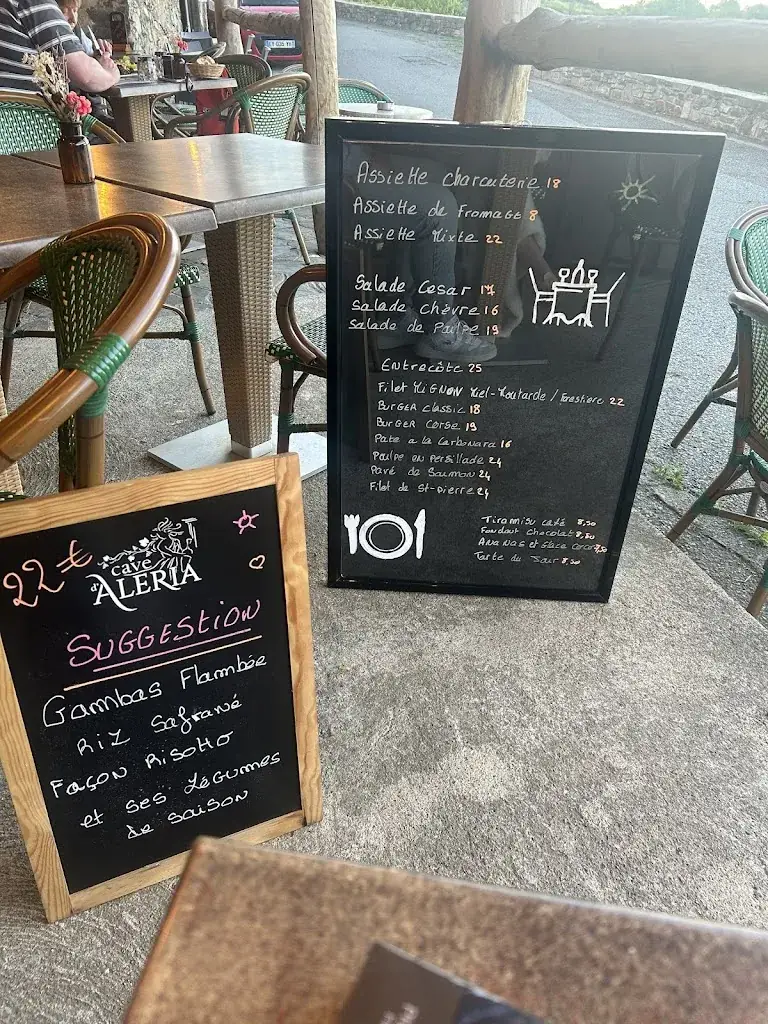 Assiette charcuterie 18
Assiette de Fromage 8
Assiette Mixte 22
Salade Cesar 17
Salade Chèvre 16
Salade de Poulpe 19
Entrecôte 25
Filet Mignon Miel-Moutarde / Forestiere 22
Burger classic 18
Burger Corse 19
Pate a la Carbonara 16
Poulpe en Persillade 24
Pavé de Saumon 24
Filet de St-Pierre 24
Tiramisu café 8,50
Fondant chocolat 8,50
Ananas et Glace coco 7,50
Tarte du Jour 8,50
22€
cave
d'ALERIA
SUGGESTION
Gambas Flambée
Riz Safrané
Façon Risotto
et ses Légumes
de saison